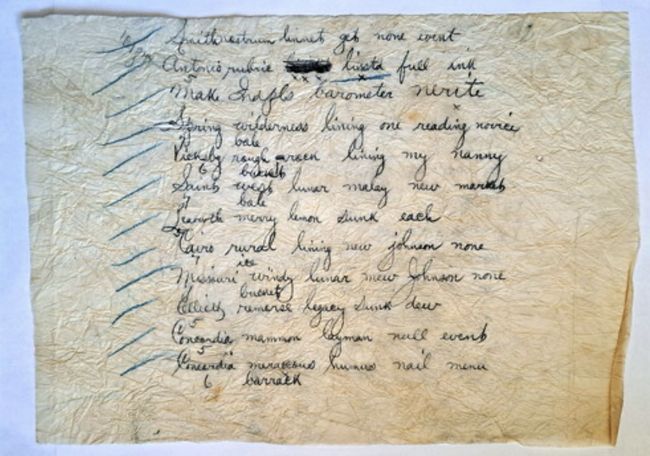 Smith nostrum linnet get none event
Antonio rubric linsta full ink
Make Indpls barometer nerite
Spring wilderness lining one reading novice
bale
Vicksbg rough rock lining my nanny
6 bucket
Saint west lunar malay new market
bale
Leavwth merry lemon sunk each
Cairo rural lining new johnson none
ice
Missouri windy lunar mew Johnson none
bucket
Elliott removes legacy sunk dew
5
Concordia mammon layman null event
5
Concordia meracious humus nail menu
6 barrack